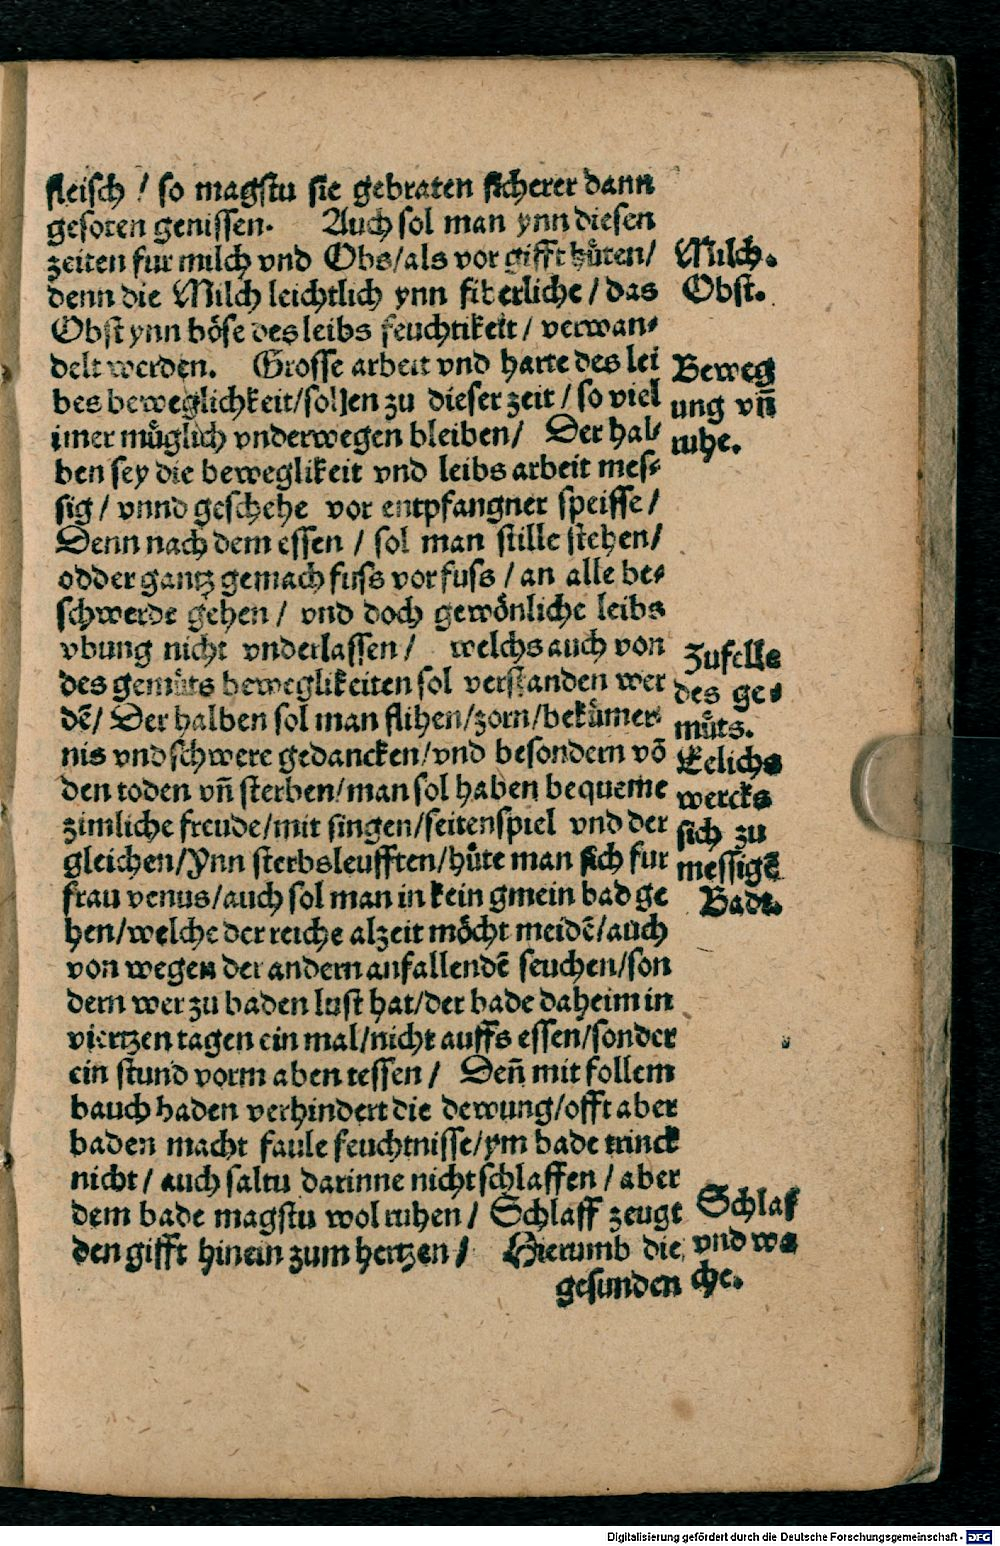 fleisch / so magstu sie gebraten sicherer dann
gesoten genissen. Auch sol man ynn diesen
zeiten fur milch vnd Obs/als vor gifft hüten/
denn die Milch leichtlich ynn fiberliche / das
Obst ynn böse des leibs feuchtikeit / verwan⸗
delt werden. Grosse arbeit vnd harte des lei
bes beweglichkeit/sollen zu dieser zeit / so viel
imer müglich vnderwegen bleiben/ Der hal⸗
ben sey die beweglikeit vnd leibs arbeit mes⸗
sig / vnnd geschehe vor entpfangner speisse /
Denn nach dem essen / sol man stille stehen/
odder gantz gemach fuss vor fuss / an alle be⸗
schwerde gehen / vnd doch gewönliche leibs
vbung nicht vnderlassen / welchs auch von
des gemüts beweglikeiten sol verstanden wer
dē/ Der halben sol man flihen/zorn/bekümer⸗
nis vnd schwere gedancken/vnd besondern vō
den toden vn̄ sterben/man sol haben bequeme
zimliche freude/mit singen/seitenspiel vnd der
gleichen/Ynn sterbsleufften/hüte man sich fur
frau venus/auch sol man in kein gmein bad ge
hen/welche der reiche alzeit möcht meidē/auch
von wegen der andern anfallendē seuchen/son
dern wer zu baden lust hat/der bade daheim in
viertzen tagen ein mal/nicht auffs essen/sonder
ein stund vorm aben tessen / Den̄ mit follem
bauch baden verhindert die dewung/offt aber
baden macht faule feuchtnisse/ym bade trinck
nicht / auch saltu darinne nicht schlaffen / aber
dem bade magstu wol ruhen / Schlaff zeugt
den gifft hinein zum hertzen / Hierumb die
gesunden
Milch.
Obst.
Beweg
ung vn̄
ruhe.
Zufelle
des ge⸗
müts.
Eelichs
wercks
sich zu
messigē
Badt.
Schlaf
vnd wa
che.
Digitalisierung gefördert durch die Deutsche Forschungsgemeinschaft - DFG